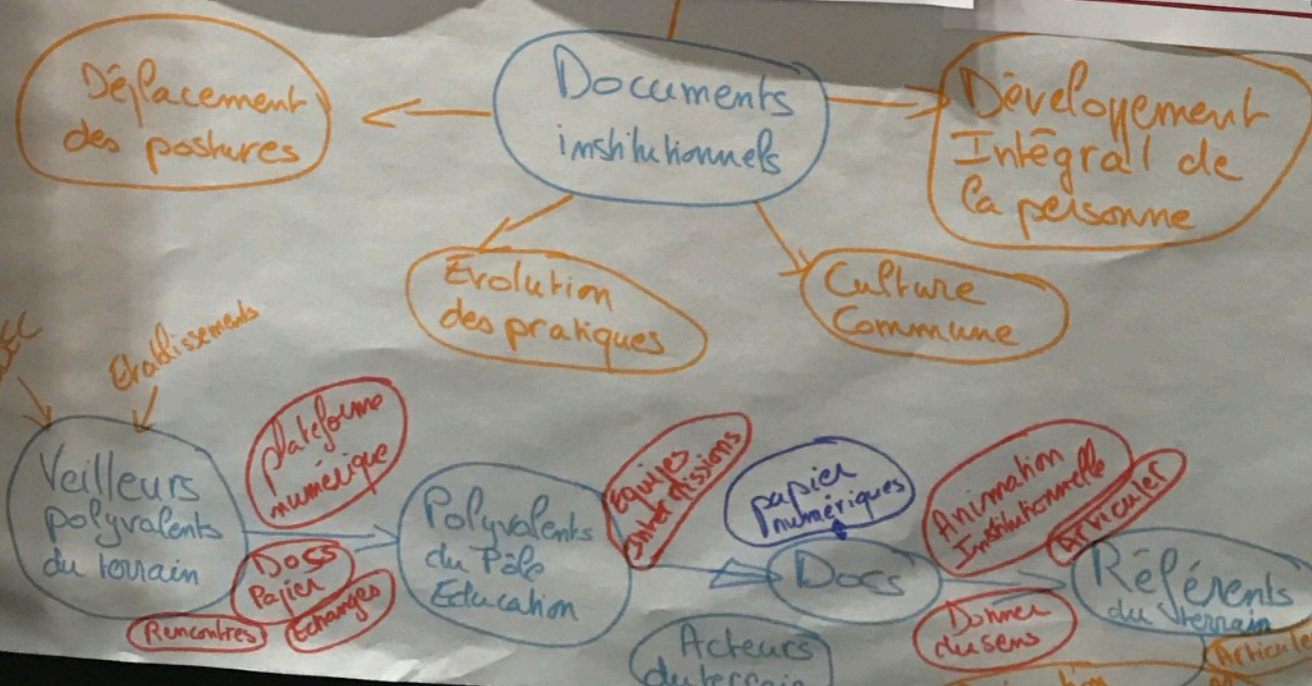 Déplacement
des postures
Documents
institutionnels
Dévelopement
Intégral de
la personne
Evolution
des pratiques
Culture
Commune
Etablissements
Veilleurs
polyvalents
du terrain
plateforme
numérique
Docs
Papier
Echanges
Rencontres
Polyvalents
du Pôle
Education
Equipes
Inter Missions
papier
numériques
Docs
Animation
Institutionnelle
Articuler
Donner
du sens
Référents
du terrain
Acteurs
du terrain